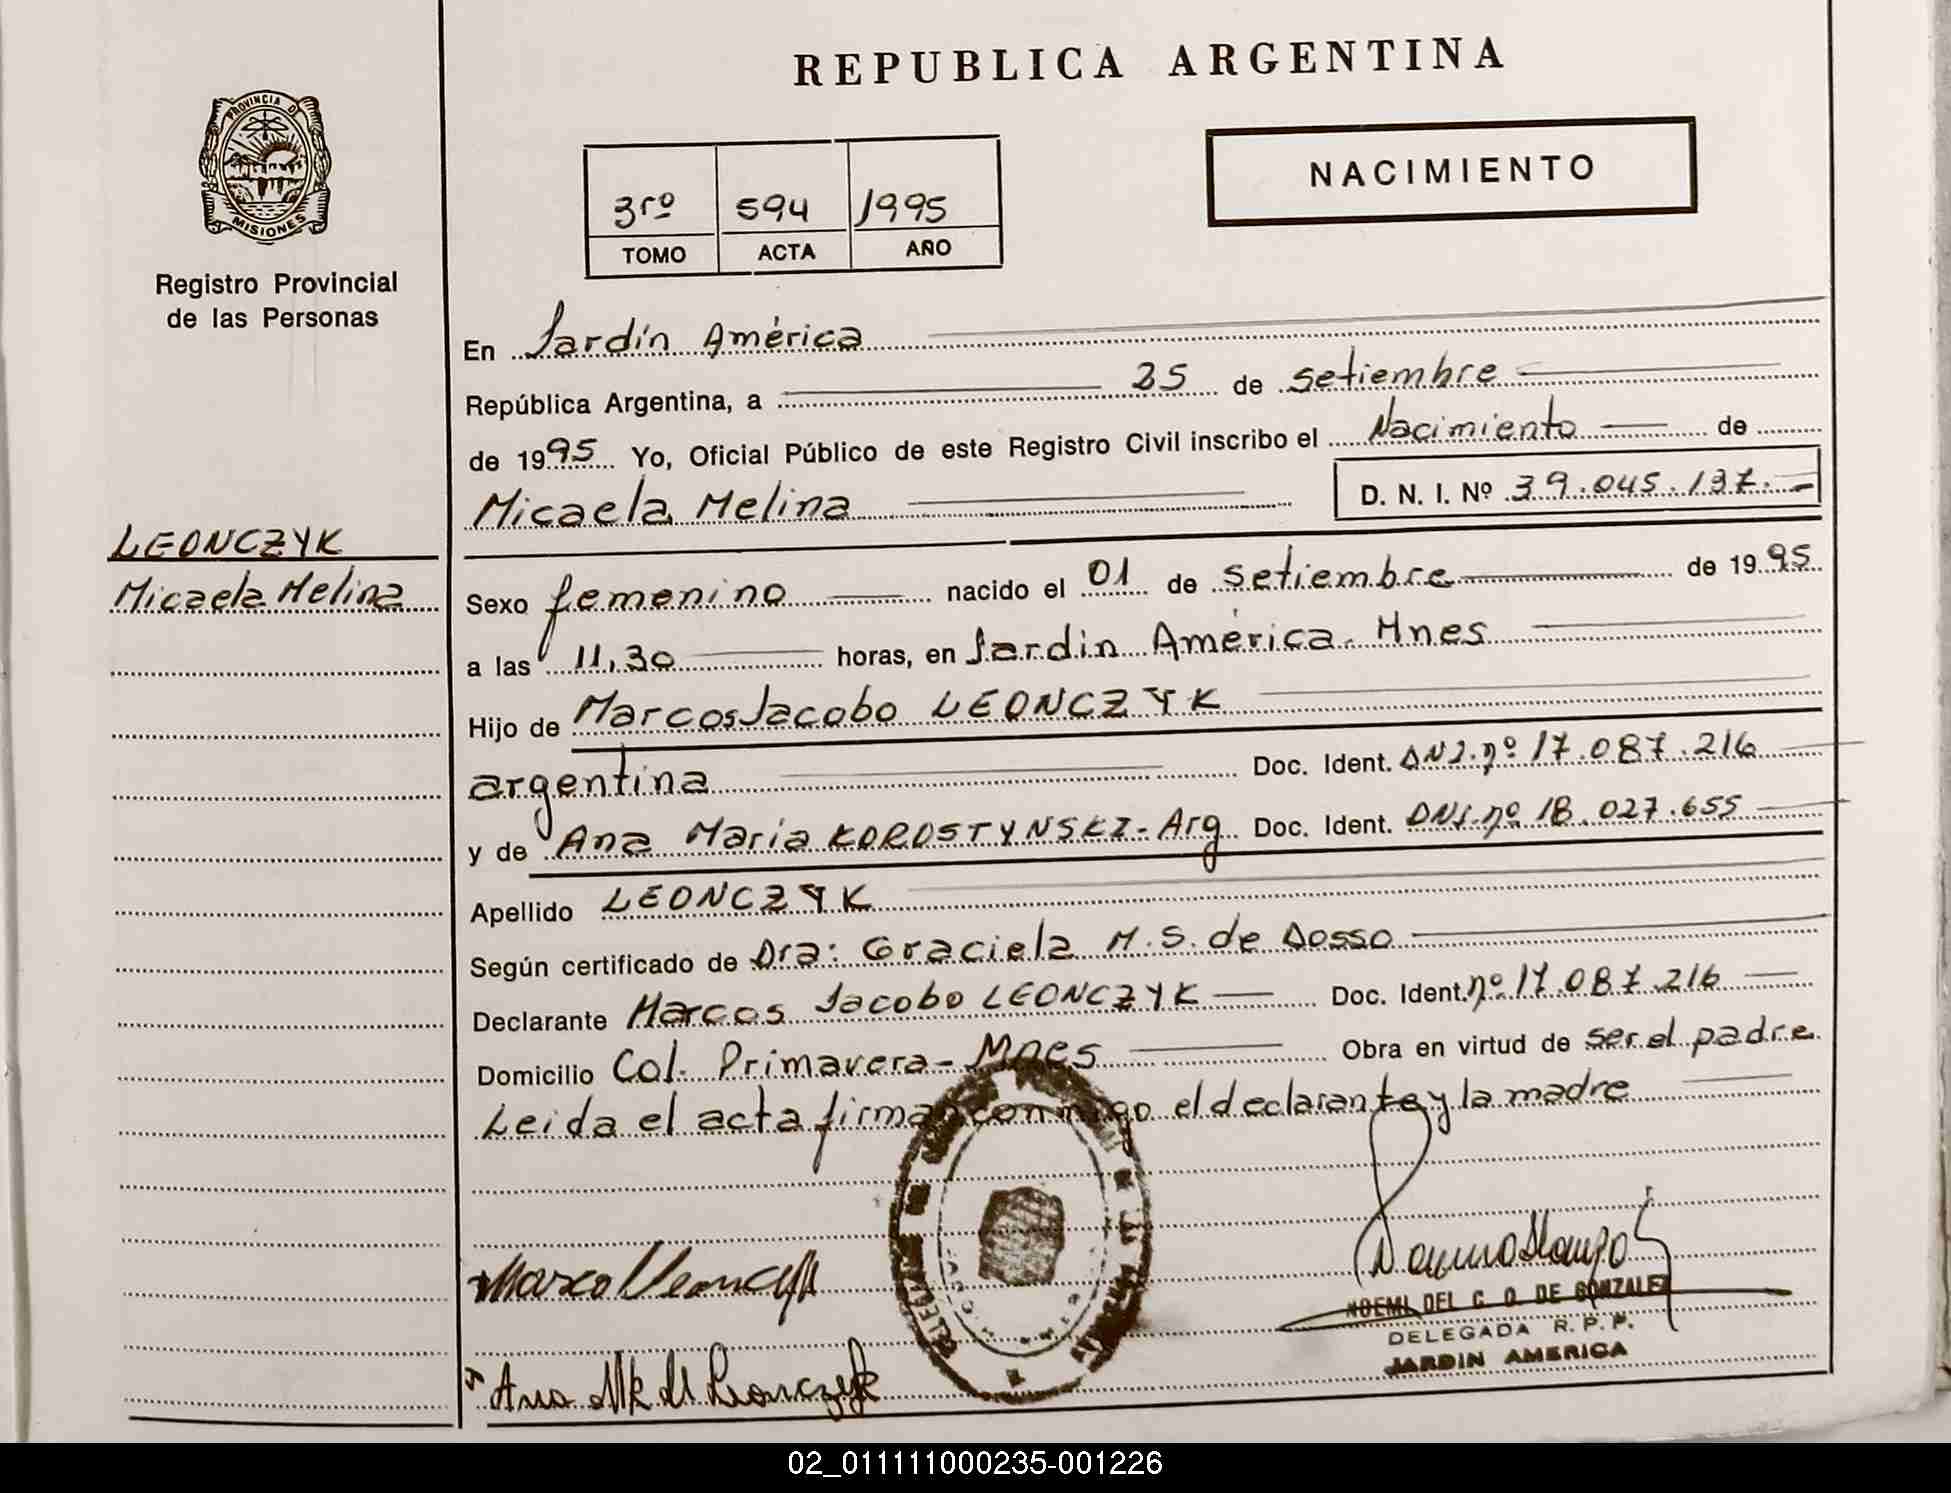 REPUBLICA ARGENTINA
PROVINCIA DE
MISIONES
Registro Provincial
de las Personas
3ro 594 1995
TOMO ACTA AÑO
NACIMIENTO
LEONCZYK
Micaela Melina
En Jardín América
República Argentina, a 25 de setiembre
de 1995 Yo, Oficial Público de este Registro Civil inscribo el Nacimiento de
Micaela Melina D. N. I. Nº 39.045.137.-
Sexo femenino nacido el 01 de setiembre de 1995
a las 11,30 horas, en Jardín América. Mnes
Hijo de Marcos Jacobo LEONCZYK
argentina Doc. Ident. DNI. nº 17.087.216
y de Ana Maria KOROSTYNSKI - Arg Doc. Ident. DNI. nº 18.027.655
Apellido LEONCZYK
Según certificado de Dra: Graciela M. S. de Dosso
Declarante Marcos Jacobo LEONCZYK Doc. Ident. nº 17.087.216
Domicilio Col. Primavera - Mnes Obra en virtud de ser el padre
Leida el acta firman conmigo el declarante y la madre
NOEMI DEL C. O. DE GONZALEZ
DELEGADA R. P. P.
JARDIN AMERICA
02_011111000235-001226